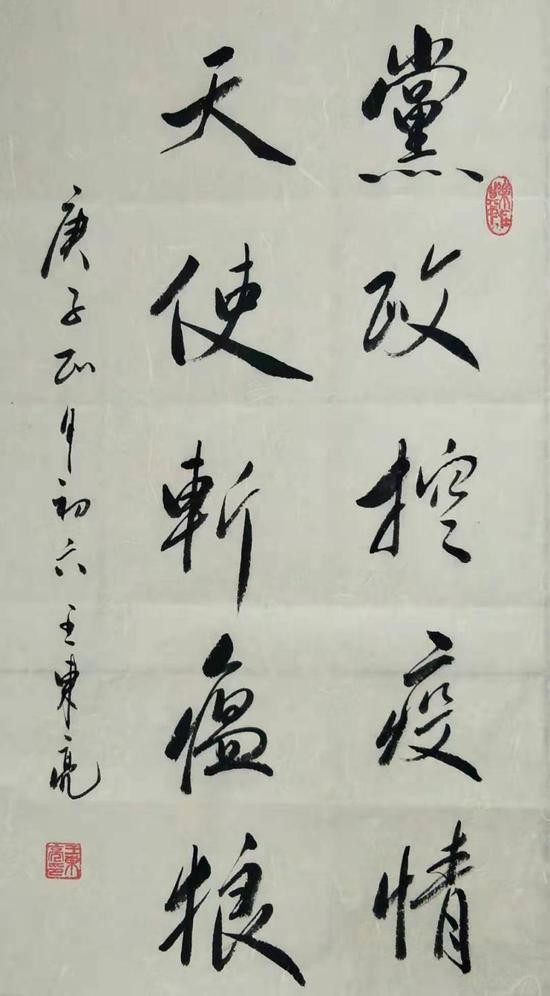 黨政控疫情
天使斬瘟狼
庚子正月初六王東亮